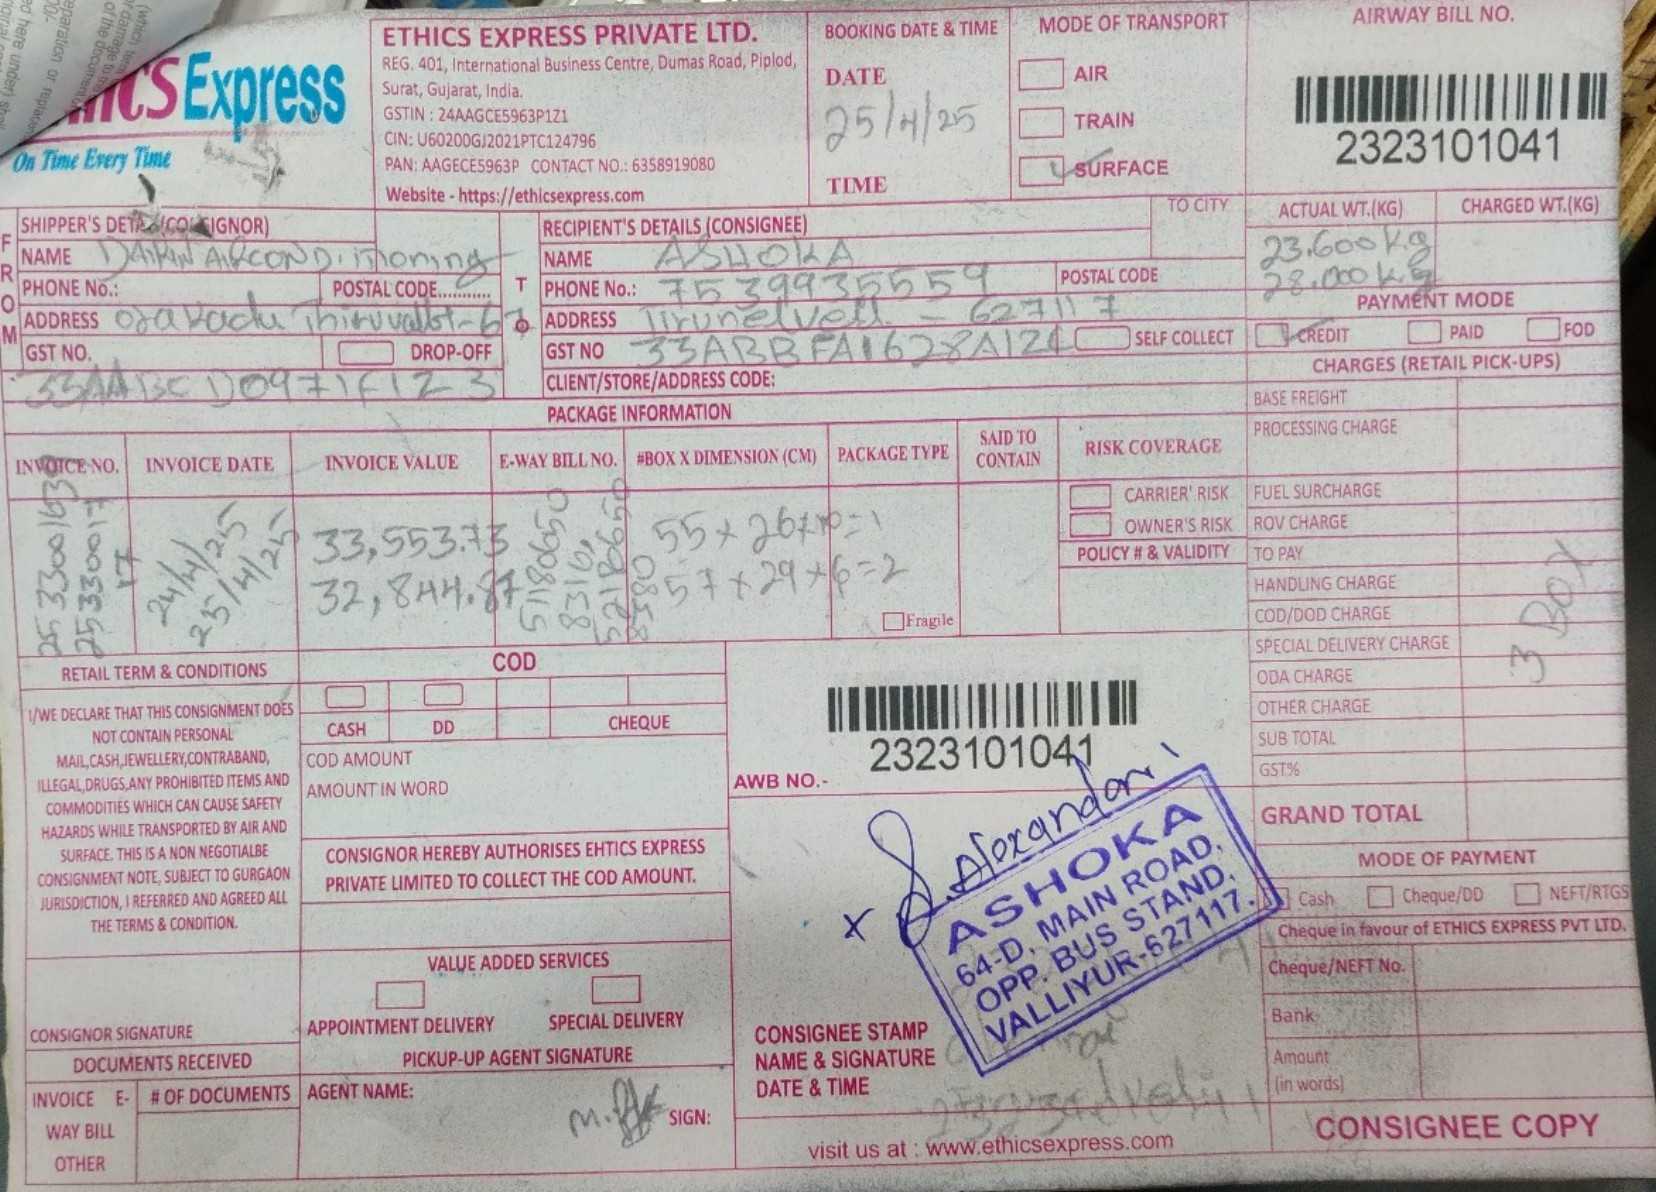 Express
On Time Every Time
ETHICS EXPRESS PRIVATE LTD.
REG. 401, International Business Centre, Dumas Road, Piplod,
Surat, Gujarat, India.
GSTIN : 24AAGCE5963P1Z1
CIN: U60200GJ2021PTC124796
PAN: AAGECE5963P CONTACT NO.: 6358919080
Website - https://ethicsexpress.com
BOOKING DATE & TIME
DATE
25/4/25
TIME
MODE OF TRANSPORT
AIR
TRAIN
SURFACE
AIRWAY BILL NO.
2323101041
FROM
SHIPPER'S DETAILS (CONSIGNOR)
NAME DAIKIN AIRCONDitioning
PHONE No.: POSTAL CODE...........
ADDRESS
GST NO. DROP-OFF
33AABCD0971F1Z3
TO
RECIPIENT'S DETAILS (CONSIGNEE)
TO CITY
NAME ASHOKA
PHONE No.: 7539935559 POSTAL CODE
ADDRESS Tirunelveli - 627117
GST NO SELF COLLECT
CLIENT/STORE/ADDRESS CODE:
ACTUAL WT.(KG) CHARGED WT.(KG)
23.600 Kg
28.000 Kg
PAYMENT MODE
CREDIT PAID FOD
CHARGES (RETAIL PICK-UPS)
BASE FREIGHT
PROCESSING CHARGE
FUEL SURCHARGE
ROV CHARGE
TO PAY
HANDLING CHARGE
COD/DOD CHARGE
SPECIAL DELIVERY CHARGE
ODA CHARGE
OTHER CHARGE
SUB TOTAL
GST%
GRAND TOTAL
3 Box
PACKAGE INFORMATION
INVOICE NO. INVOICE DATE INVOICE VALUE E-WAY BILL NO. #BOX X DIMENSION (CM) PACKAGE TYPE SAID TO CONTAIN RISK COVERAGE
24/4/25 33,553.73
25/4/25 32,844.87 57 x 29 x 6 = 2
Fragile
CARRIER' RISK
OWNER'S RISK
POLICY # & VALIDITY
RETAIL TERM & CONDITIONS
I/WE DECLARE THAT THIS CONSIGNMENT DOES
NOT CONTAIN PERSONAL
MAIL,CASH,JEWELLERY,CONTRABAND,
ILLEGAL,DRUGS,ANY PROHIBITED ITEMS AND
COMMODITIES WHICH CAN CAUSE SAFETY
HAZARDS WHILE TRANSPORTED BY AIR AND
SURFACE. THIS IS A NON NEGOTIALBE
CONSIGNMENT NOTE, SUBJECT TO GURGAON
JURISDICTION, I REFERRED AND AGREED ALL
THE TERMS & CONDITION.
CONSIGNOR SIGNATURE
DOCUMENTS RECEIVED
INVOICE E-
WAY BILL
OTHER
# OF DOCUMENTS
COD
CASH DD CHEQUE
COD AMOUNT
AMOUNT IN WORD
CONSIGNOR HEREBY AUTHORISES EHTICS EXPRESS
PRIVATE LIMITED TO COLLECT THE COD AMOUNT.
VALUE ADDED SERVICES
APPOINTMENT DELIVERY SPECIAL DELIVERY
PICKUP-UP AGENT SIGNATURE
AGENT NAME:
SIGN:
2323101041
AWB NO.-
ASHOKA
64-D, MAIN ROAD,
OPP. BUS STAND,
VALLIYUR-627117.
CONSIGNEE STAMP
NAME & SIGNATURE
DATE & TIME
visit us at : www.ethicsexpress.com
MODE OF PAYMENT
Cash Cheque/DD NEFT/RTGS
Cheque in favour of ETHICS EXPRESS PVT LTD.
Cheque/NEFT No.
Bank
Amount
(in words)
CONSIGNEE COPY